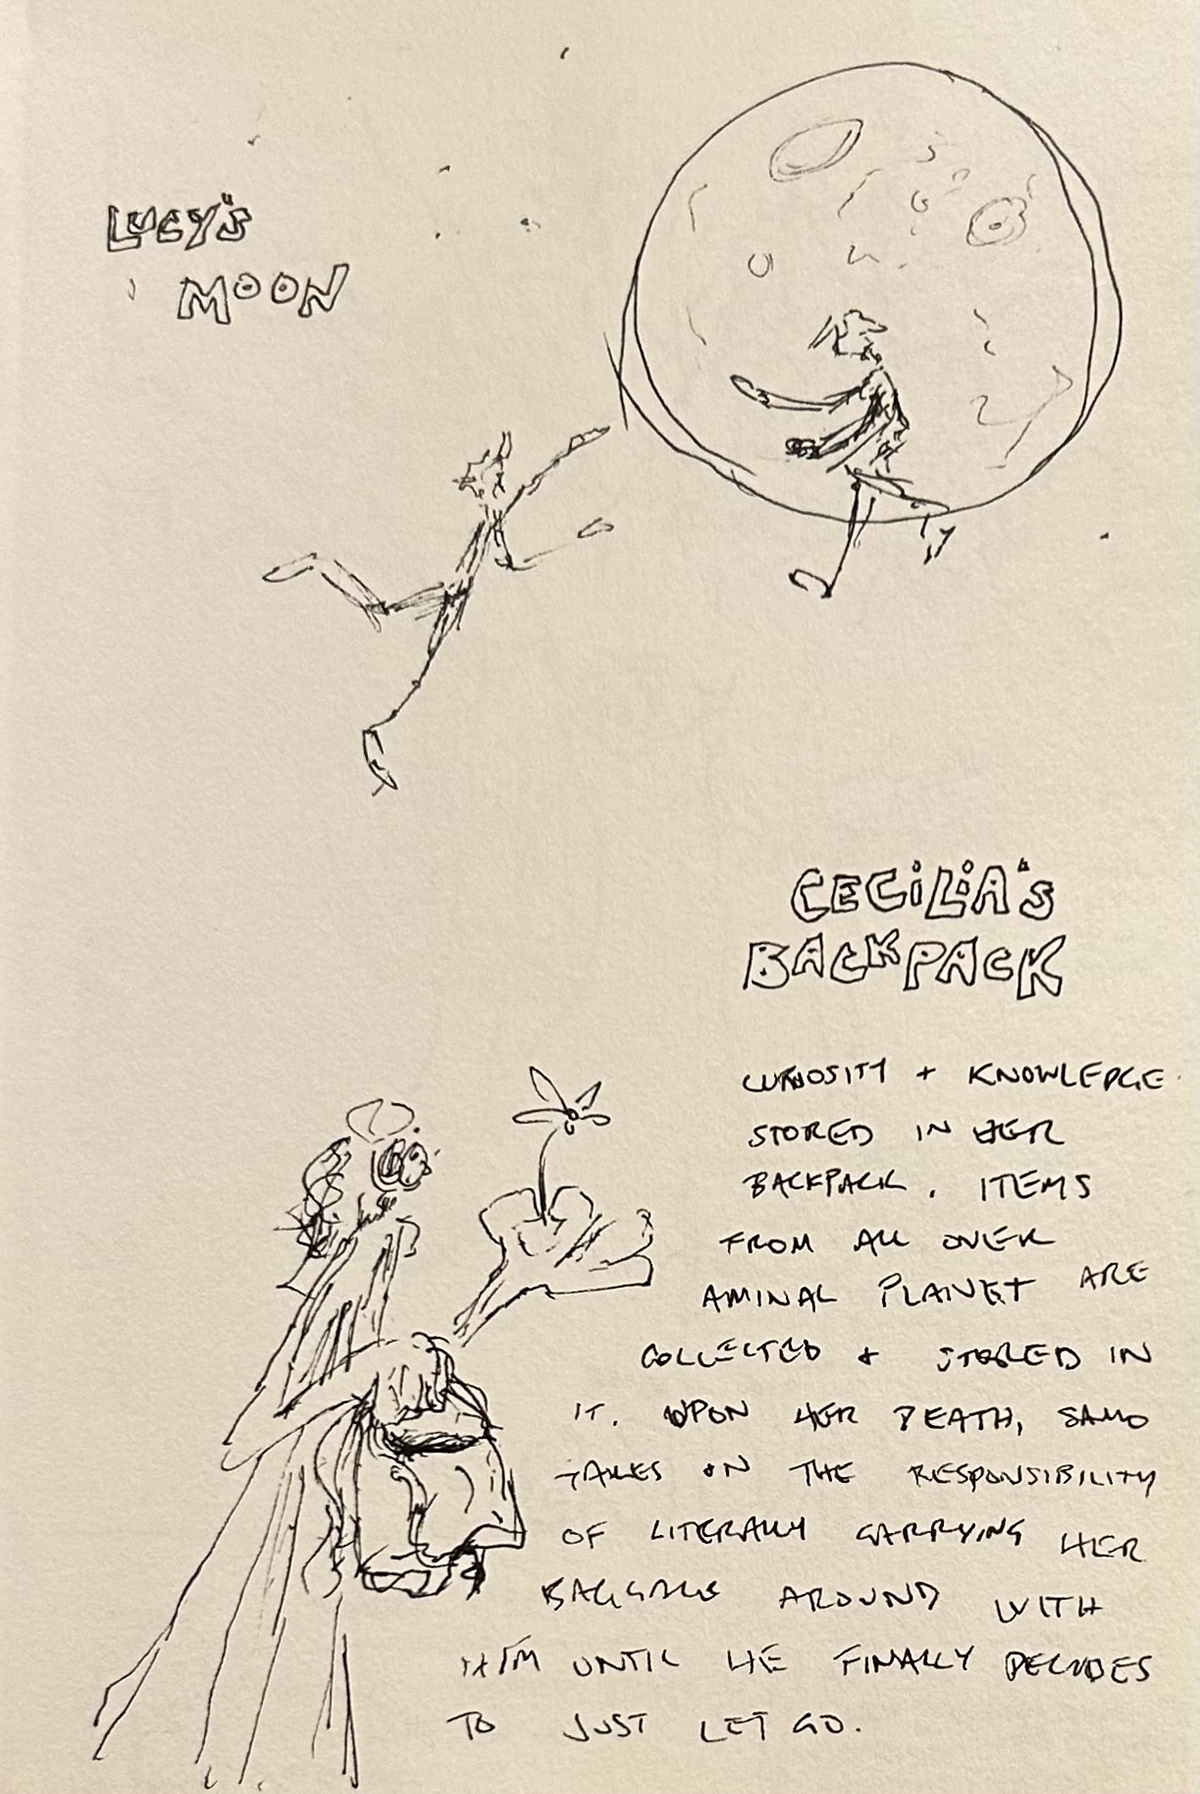 LUCY'S
MOON
CECILIA'S
BACKPACK
CURIOSITY + KNOWLEDGE
STORED IN HER
BACKPACK. ITEMS
FROM ALL OVER
AMINAL PLANET ARE
COLLECTED & STORED IN
IT. UPON HER DEATH, SAMO
TAKES ON THE RESPONSIBILITY
OF LITERALLY CARRYING HER
BAGGAGE AROUND WITH
HIM UNTIL HE FINALLY DECIDES
TO JUST LET GO.